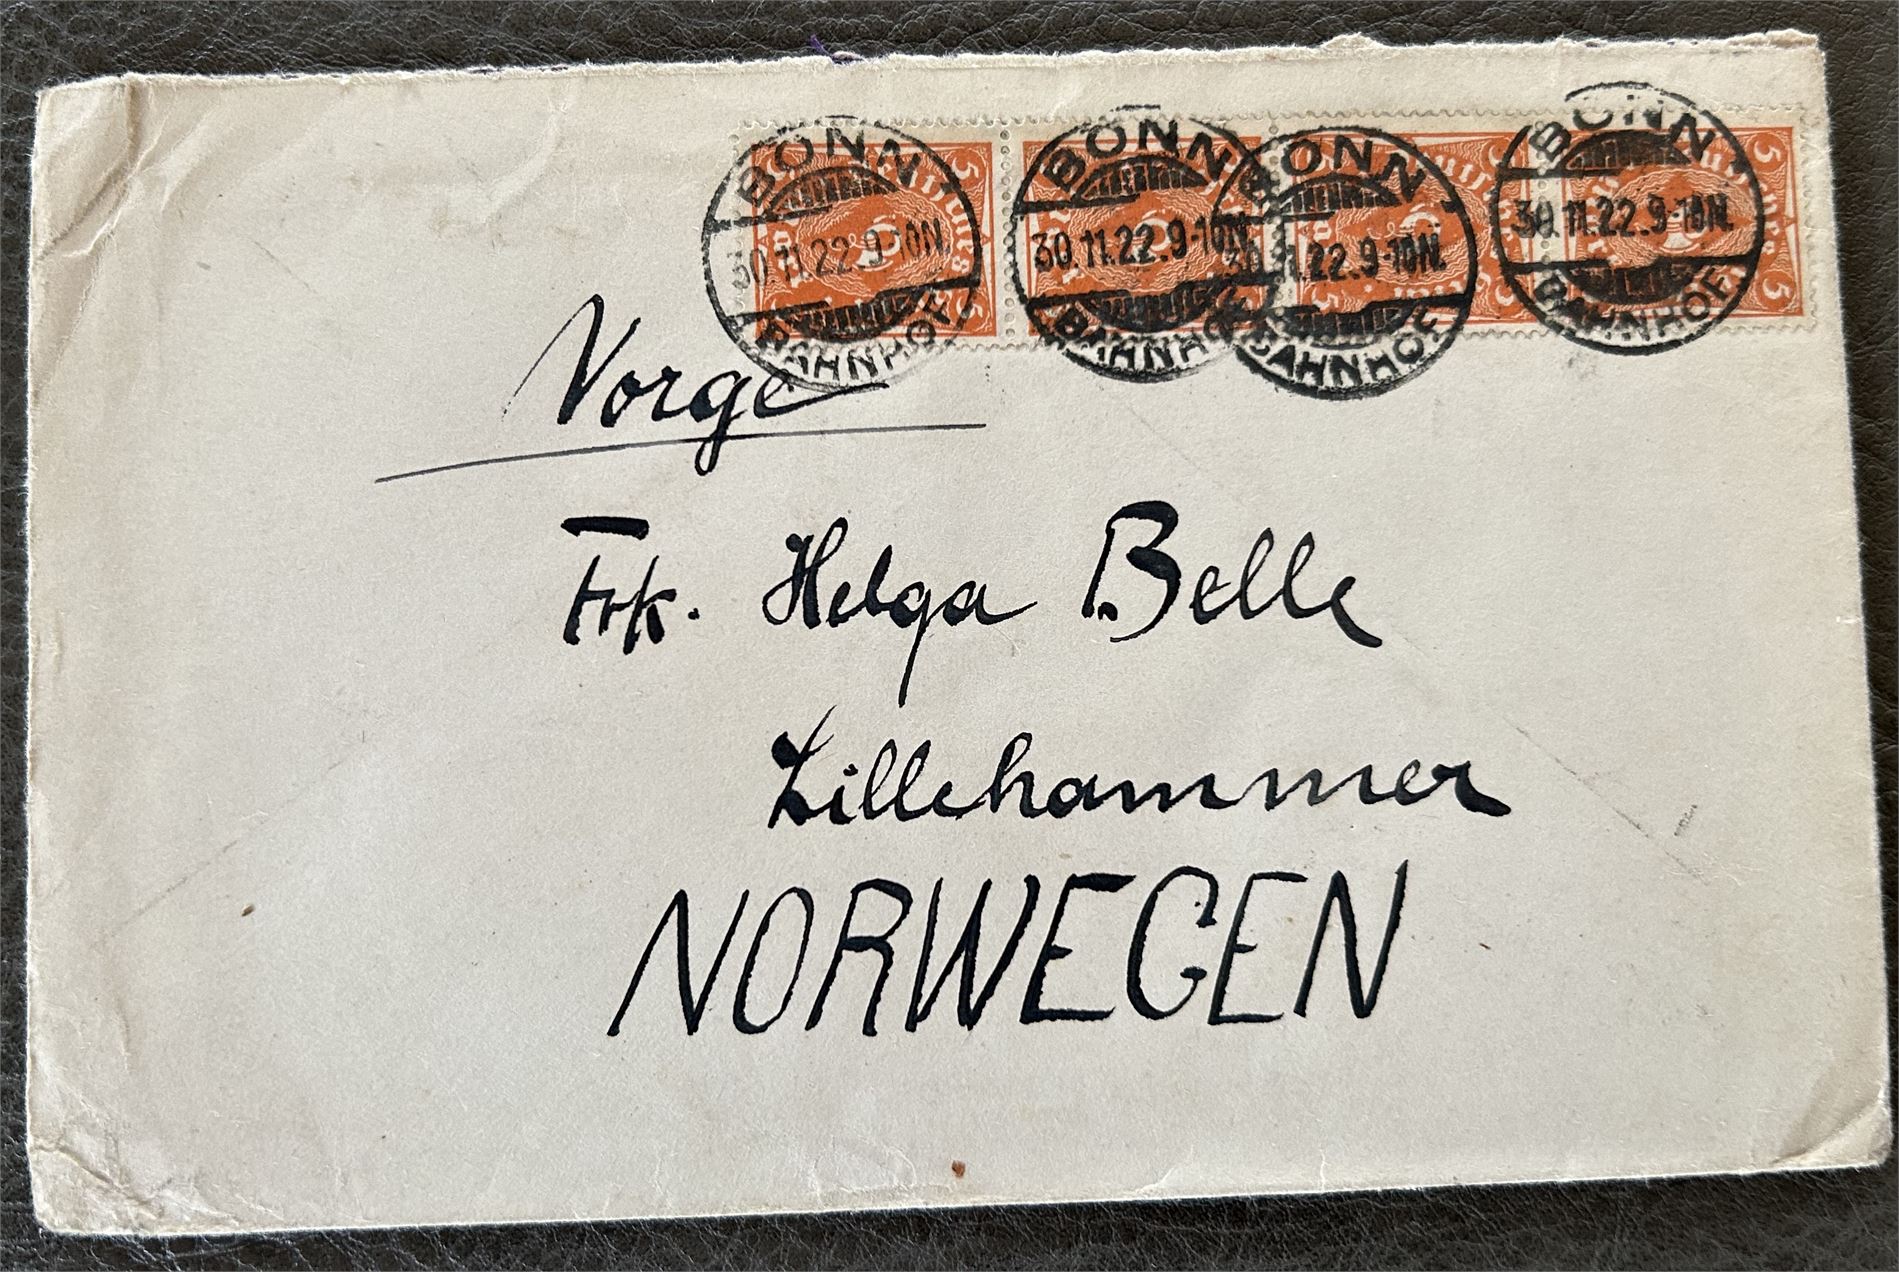 BONN BONN BONN BONN
30.11.22.9-10N. 30.11.22.9-10N. 30.11.22.9-10N. 30.11.22.9-10N.
BAHNHOF BAHNHOF BAHNHOF BAHNHOF
5 5 5 5
Vorge
Frk. Helga Belle
Lillehammer
NORWEGEN